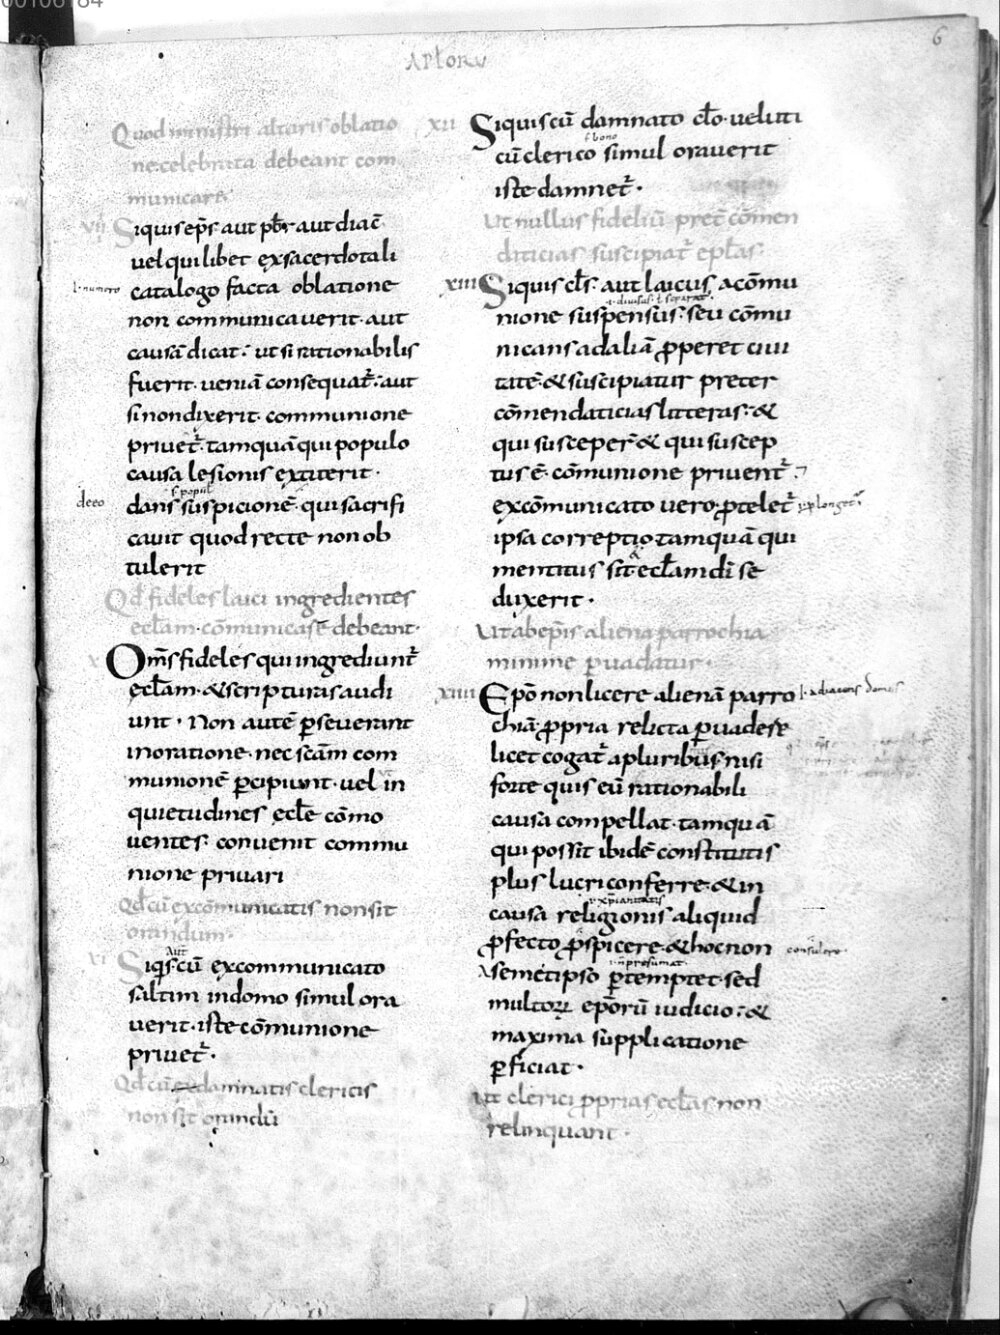 00106184
6
APLORU
Quod ministri altaris oblatio
ne celebrata debeant com
municare
VIIII Siquis ep̅s aut pb̅r aut diac̅
uel quilibet ex sacerdotali
catalogo facta oblatione
non communicauerit· aut
causa̅ dicat· ut si rationabilis
fuerit· uenia̅ consequat̅· aut
si non dixerit· communione
priuet̅· tamqua̅ qui populo
causa lesionis extiterit·
s· popul
deeo
dans suspicione̅· qui sacrifi
cauit quod recte non ob
tulerit
Qd̅ fideles laici ingredientes
eccl̅am· co̅municare debeant·
X Om̅s fideles qui ingrediunt̅
eccl̅am· & scripturas audi
unt· Non aute̅ ꝑseuerant
in oratione· nec sc̅am com
munione̅ ꝑcipiunt· uel in
quietudines eccl̅e co̅mo
uentes· conuenit commu
nione priuari
Qd̅ cu̅ excomunicatis non sit
orandum·
aut̅
XI Siqs̅ cu̅ excommunicato
saltim in domo simul ora
uerit· iste co̅munione
priuet̅·
Qd̅ cu̅ damnatis clericis
non sit orandu̅
XII Siquis cu̅ damnato cl̅o· ueluti
s· bono
cu̅ clerico simul orauerit
iste damnet̅·
Ut nullus fideliu̅ pret̅ co̅men
diticias suscipiat̅ epl̅as·
XIII Siquis cl̅s· aut laicus, a co̅mu
i· diuisus· l̅ separat
nione suspensus· seu co̅mu
nicans ad alia̅ ꝓperet ciui
tate̅· & suscipiatur preter
co̅mendaticias litteras· &
qui susceper̅ & qui suscep
tus e̅· co̅munione priuent̅·
exco̅municato uero ꝓtelet̅
ipsa correptio tamqua̅ qui
&
mentitus sit· eccl̅am di̅ se
duxerit·
Ut ab ep̅is aliena parrochia
minime ꝑuadatur·
XIIII Epo̅ non licere aliena̅ parro
chia̅· ꝓpria relicta ꝑuadere
licet cogat̅ a pluribus· nisi
forte quis eu̅ rationabili
causa compellat· tamqua̅
qui possit ibide̅ constitutis
plus lucri conferre· & in
i· xp̅ianitatis
causa religionis aliquid
ꝓfecto ꝓspicere· & hoc non consulere·
i· n̅ presumat
a semetipso ꝑtemptet· sed
multoꝝ epo̅ru̅ iudicio· &
maxima supplicatione
ꝑficiat·
Ut clerici ꝓprias eccl̅as non
relinquant·